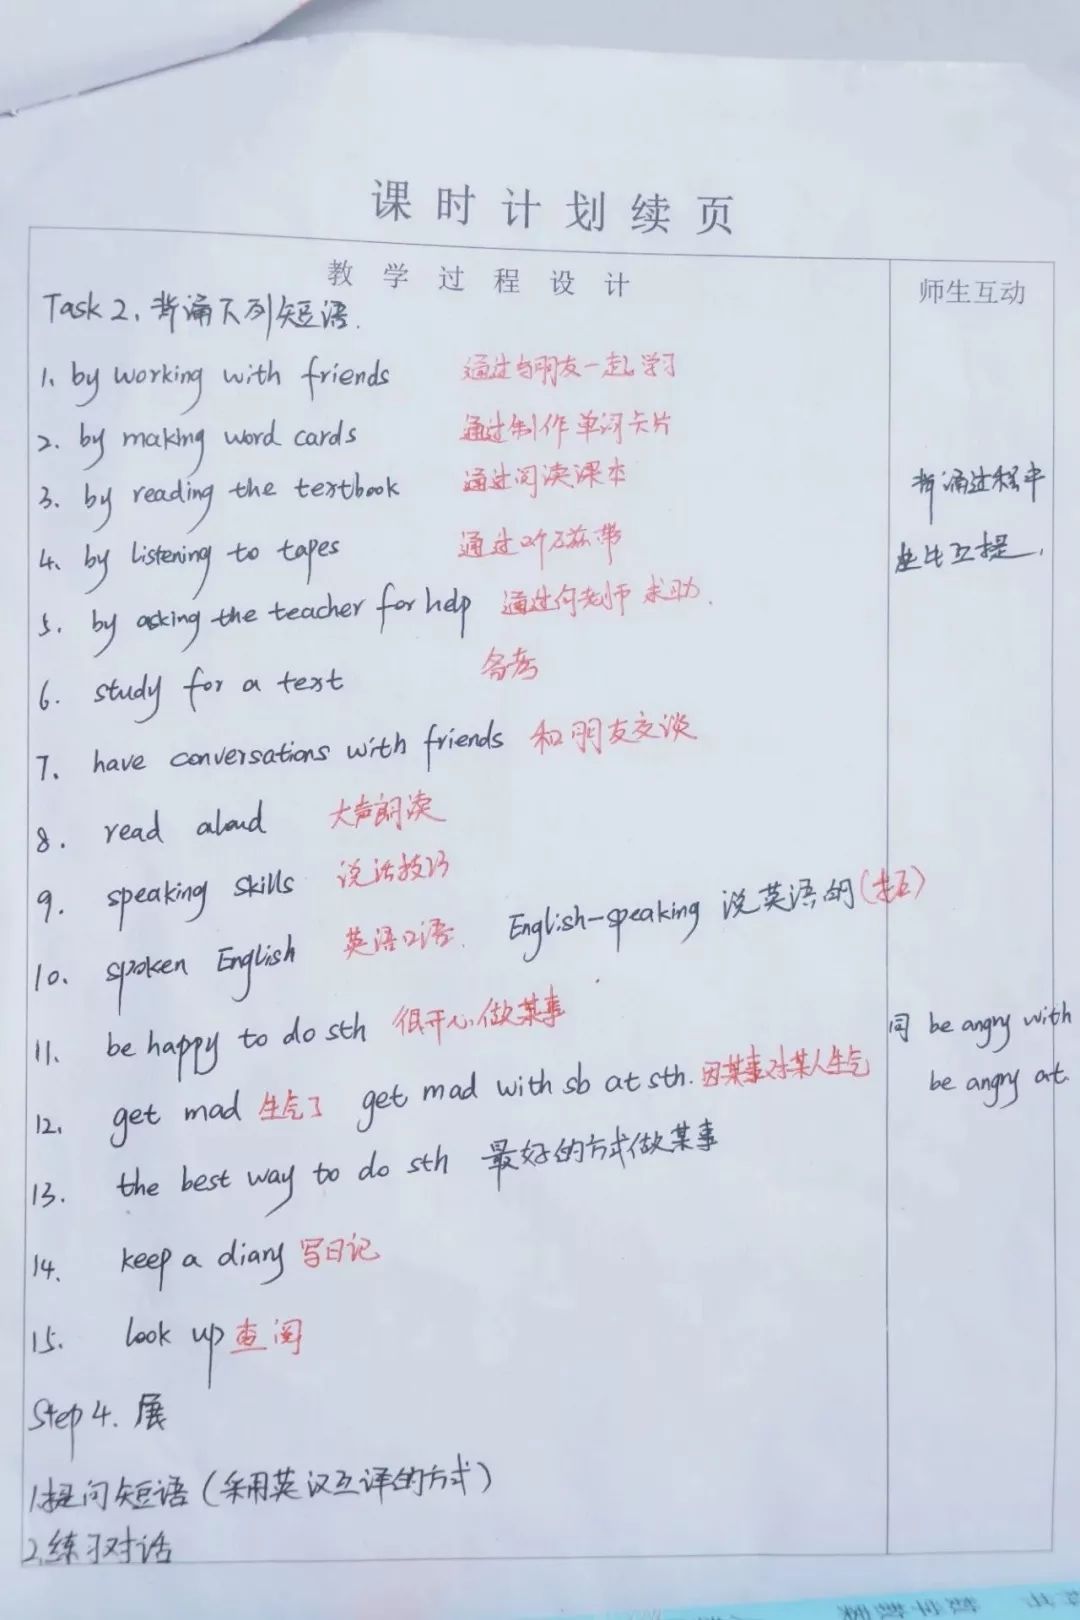 课时计划续页
教学过程设计
师生互动
Task 2、背诵下列短语.
1、by working with friends 通过与朋友一起学习
2. by making word cards 通过制作单词卡片
3. by reading the textbook 通过阅读课本
背诵过程中
4. by listening to tapes 通过听磁带
生生互提.
5. by asking the teacher for help 通过向老师求助.
6. study for a text 备考
7. have conversations with friends 和朋友交谈
8. read aloud 大声朗读
9. speaking skills 说话技巧
10. spoken English 英语口语. English-speaking 说英语的
11. be happy to do sth 很开心做某事
同 be angry with
12. get mad 生气了 get mad with sb at sth. 因某事对某人生气
be angry at.
13. the best way to do sth 最好的方式做某事
14. keep a diary 写日记
15. look up 查阅
Step 4. 展
1.提问短语（采用英汉互译的方式）
2.练习对话